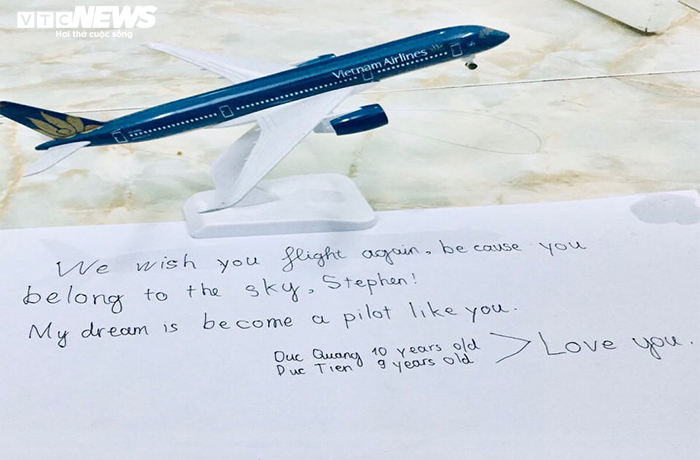 VTC NEWS
Hơi thở cuộc sống
Vietnam Airlines
We wish you flight again, because you
belong to the sky, Stephen!
My dream is become a pilot like you.
Duc Quang 10 years old
Duc Tien 9 years old
> Love you.